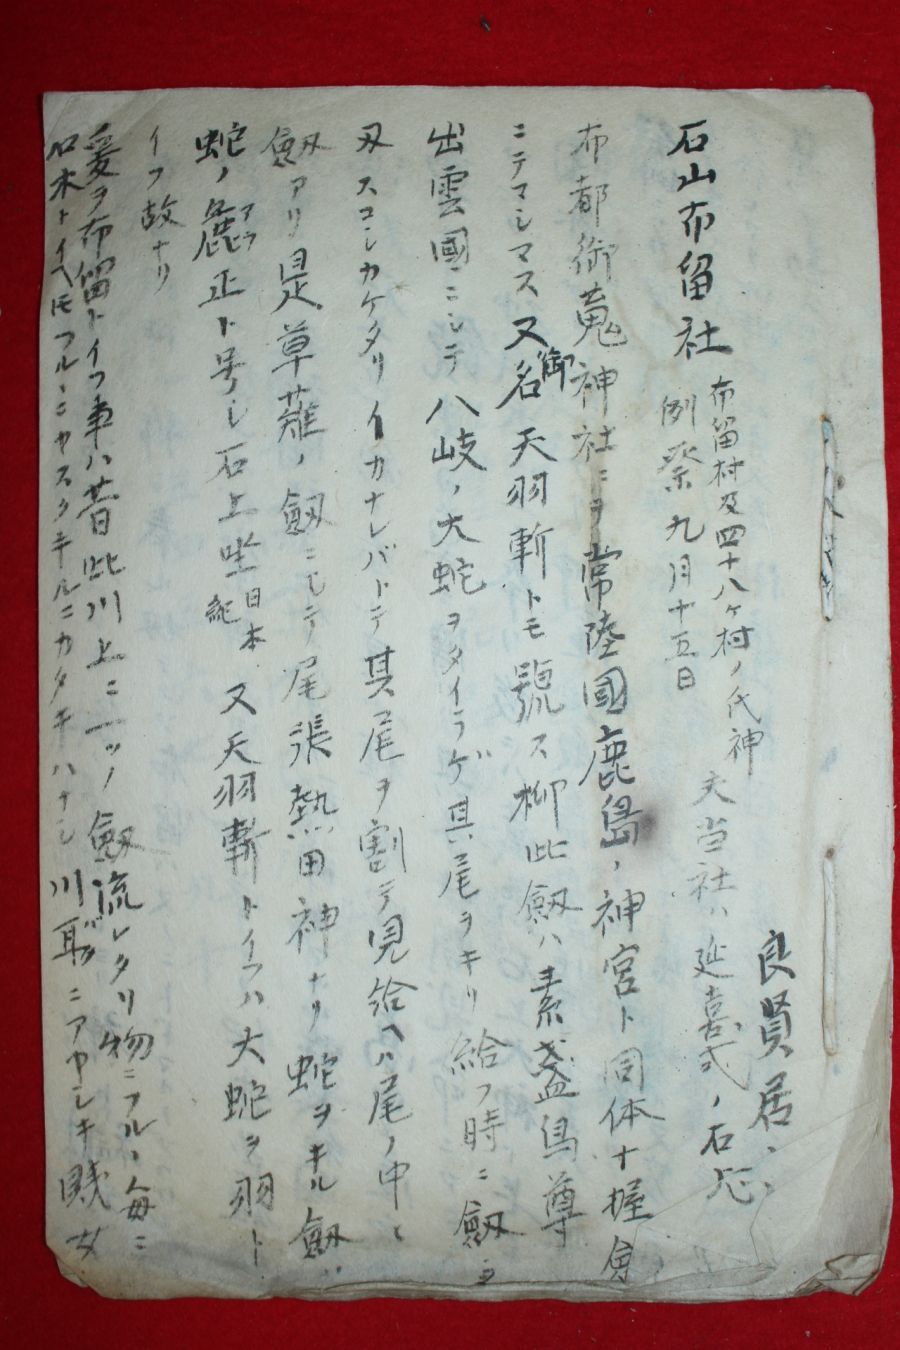 良賢居、
石山布留社
布留村及四十八ヶ村ノ氏神
例祭九月十五日
夫当社ハ延喜式ノ石
布都御蒐神社ニヲ常陸國鹿島ノ神宮ト同体十握
ニテマシマス又御名天羽斬トモ號ス柳此劔ハ素盞烏尊
出雲國ニシテ八岐ノ大蛇ヲタイラゲ其尾ヲキリ給フ時ニ劔ヲ
刄スコシカケタリイカナレバトテ其尾ヲ割テ見給ヘハ尾ノ中ニ
劔アリ是草薙ノ劔ニシテ尾張熱田神ナリ蛇ヲキル劔ハ
蛇ノ麁アラ正ト号シ石上坐日本紀又天羽斬トイフハ大蛇ヲ羽ト
イフ故ナリ
爰ヲ布留トイフ事ハ昔此川上ニ一ツノ劔流レタリ物ニフルヽ毎ニ
石木トイヘ𪜈フルヽニヤスクキルニカタキハナシ川ニアヤシキ賎女